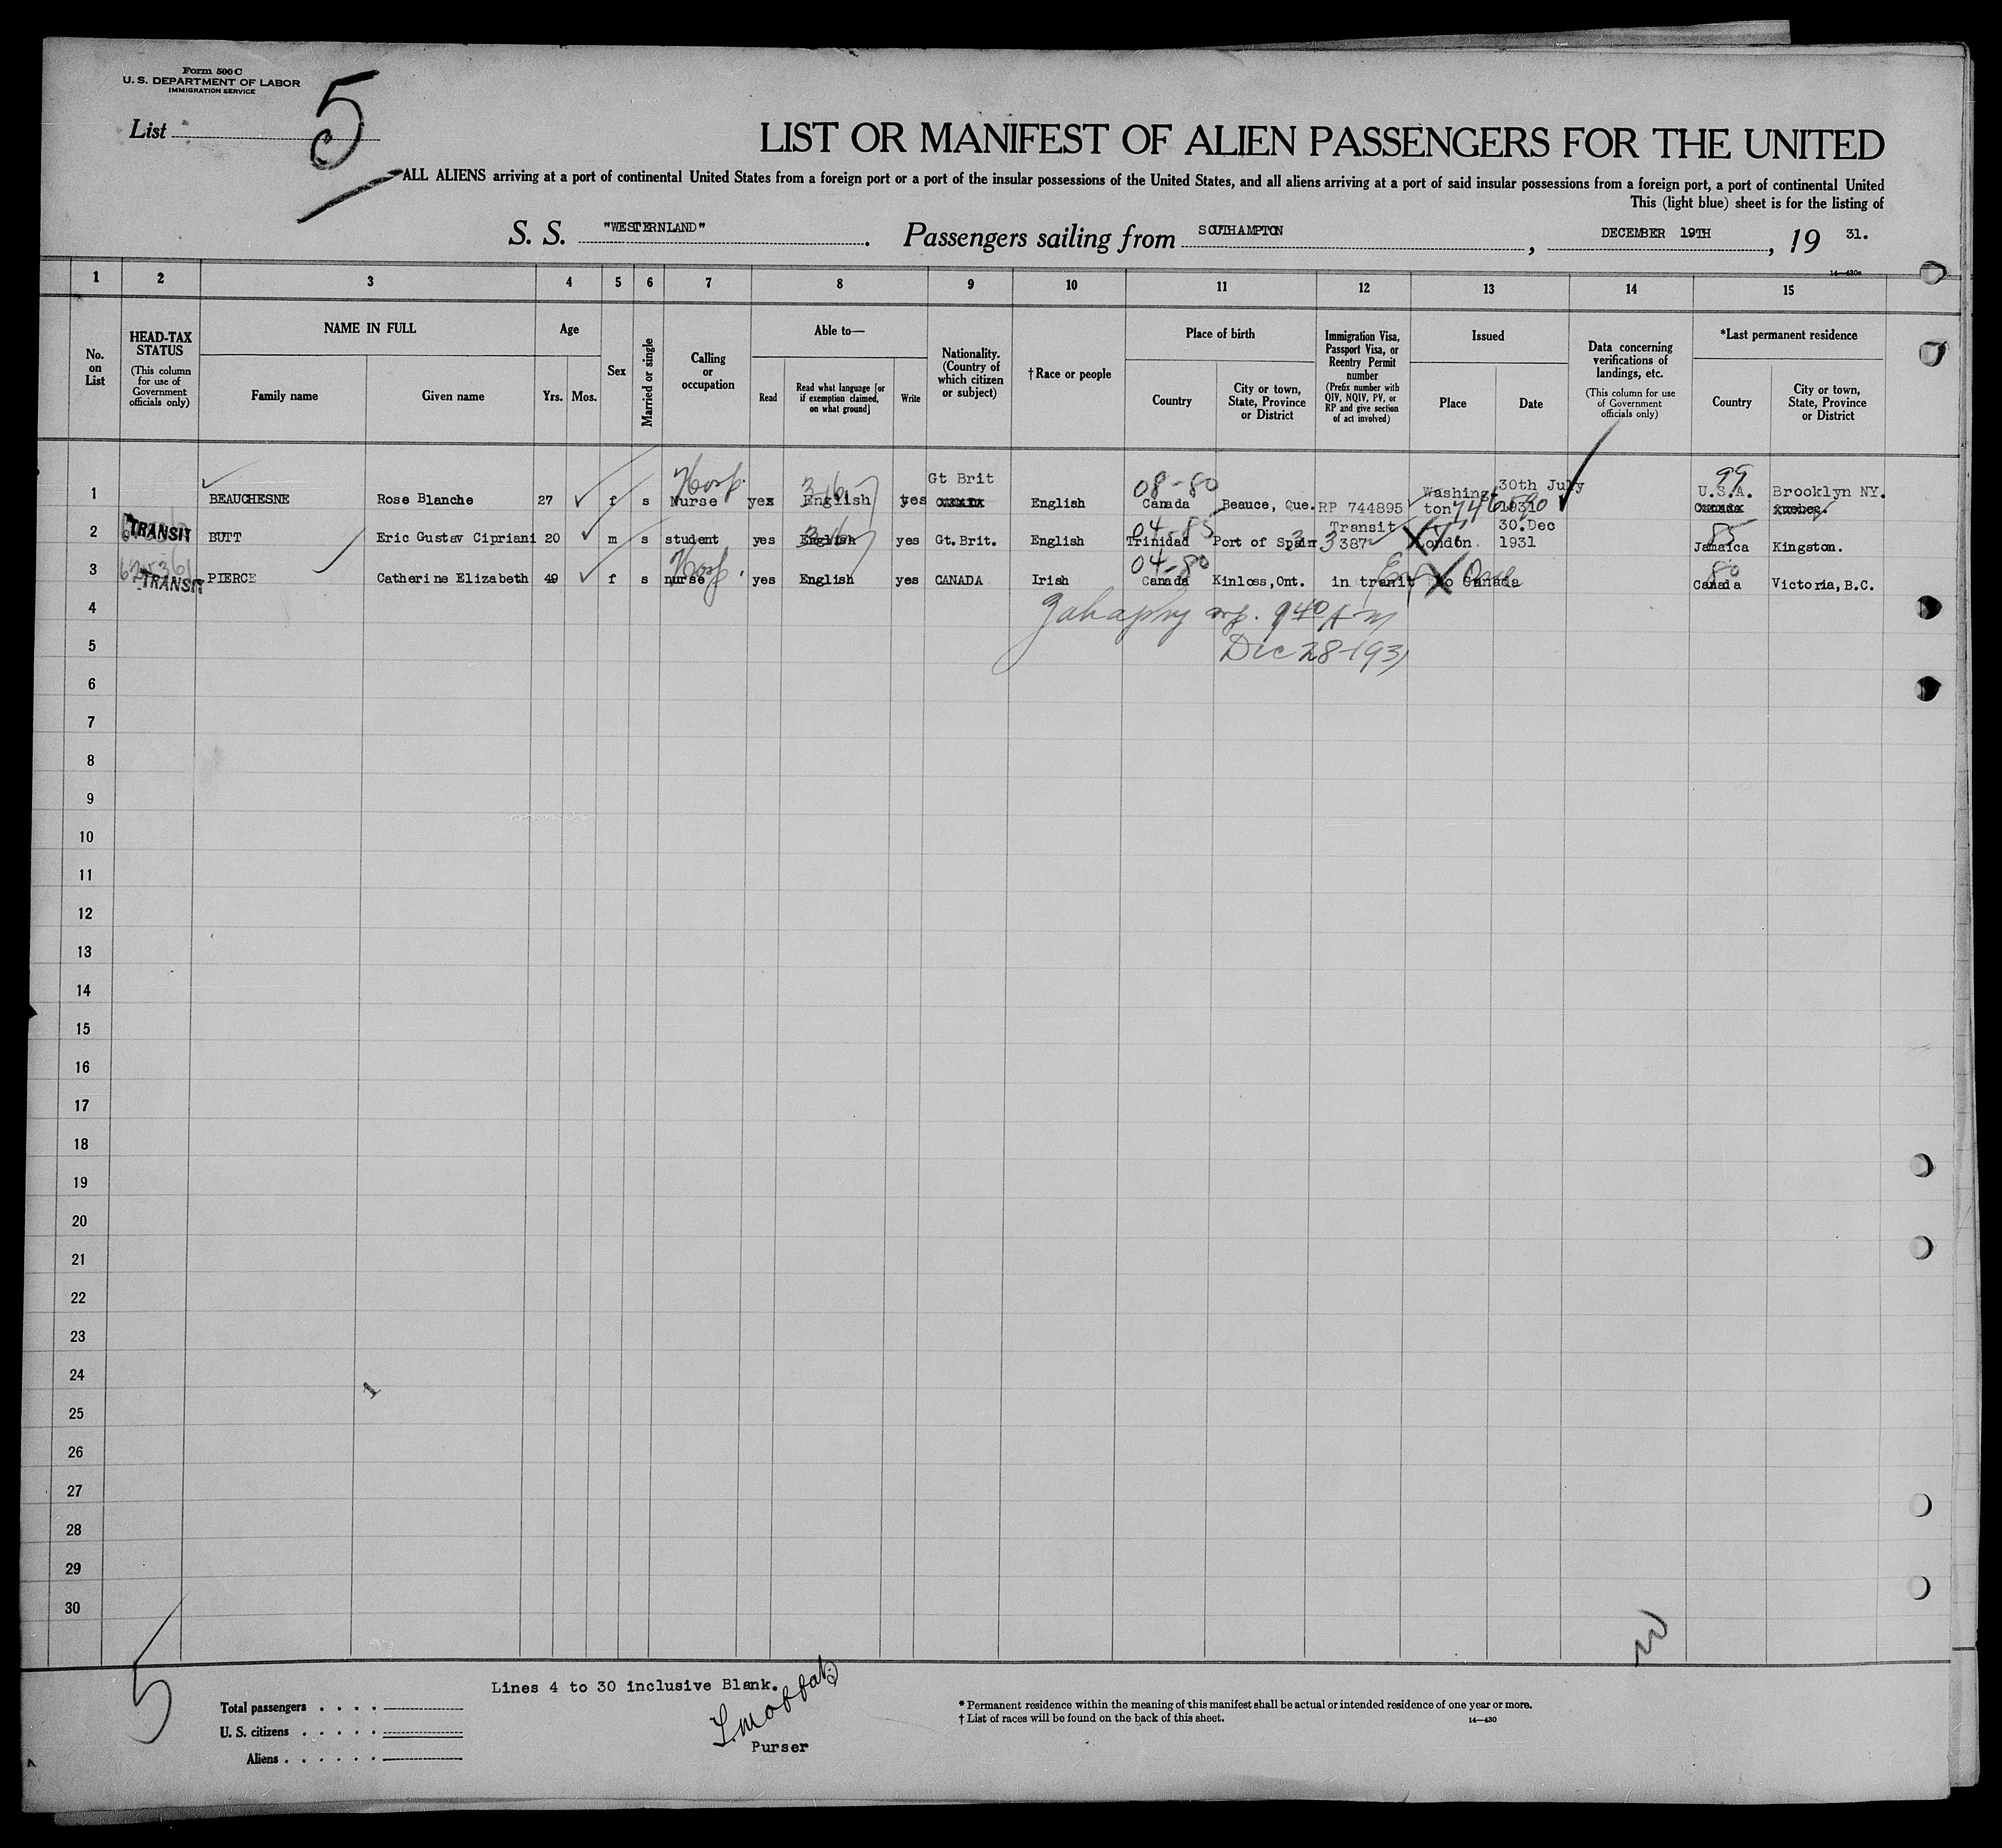 Form 500 C
U. S. DEPARTMENT OF LABOR
IMMIGRATION SERVICE
List 5
LIST OR MANIFEST OF ALIEN PASSENGERS FOR THE UNITED
ALL ALIENS arriving at a port of continental United States from a foreign port or a port of the insular possessions of the United States, and all aliens arriving at a port of said insular possessions from a foreign port, a port of continental United
This (light blue) sheet is for the listing of
S. S. "WESTERNLAND". Passengers sailing from SOUTHAMPTON, DECEMBER 19TH, 19 31.
14—430c
1 2 3 4 5 6 7 8 9 10 11 12 13 14 15
No. on List
HEAD-TAX STATUS (This column for use of Government officials only)
NAME IN FULL
Family name Given name
Age
Yrs. Mos.
Sex
Married or single
Calling or occupation
Able to—
Read
Read what language [or if exemption claimed, on what ground]
Write
Nationality. (Country of which citizen or subject)
†Race or people
Place of birth
Country
City or town, State, Province or District
Immigration Visa, Passport Visa, or Reentry Permit number (Prefix number with QIV, NQIV, PV, or RP and give section of act involved)
Issued
Place Date
Data concerning verifications of landings, etc. (This column for use of Government officials only)
*Last permanent residence
Country
City or town, State, Province or District
Hosp. 3-6 Gt Brit 08-80 Washing- 30th July 99 U.S.A. Brooklyn NY.
1 BEAUCHESNE Rose Blanche 27 f s Nurse yes English yes CANADA English Canada Beauce, Que. RP 744895 ton 1931 Canada Quebec.
04-85 Transit 30.Dec 85
2 TRANSIT BUTT Eric Gustav Cipriani 20 m s student yes English yes Gt.Brit. English Trinidad Port of Spain 3 387 London. 1931 Jamaica Kingston.
Hosp. 04-80 80
3 TRANSIT PIERCE Catherine Elizabeth 49 f s nurse yes English yes CANADA Irish Canada Kinloss,Ont. in transit to Canada Canada Victoria,B.C.
4 940 AM
5 Dec 28-1931
6
7
8
9
10
11
12
13
14
15
16
17
18
19
20
21
22
23
24
25
26
27
28
29
30
5
Lines 4 to 30 inclusive Blank.
Purser
Total passengers . . . .
U. S. citizens . . . . . .
Aliens . . . . . .
* Permanent residence within the meaning of this manifest shall be actual or intended residence of one year or more.
† List of races will be found on the back of this sheet.
14—430